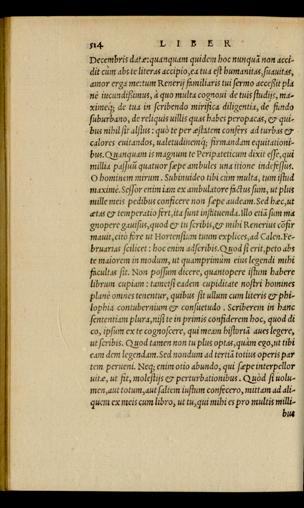 514 LIBER
Decembris datæ: quanquam quidem hoc nunquā non acci-
dit cùm abs te literas accipio, ea tua est humanitas, suauitas,
amor erga me: tum Renerij familiaris tui sermo accessit pla
nè iucundissimus, à quo multa cognoui de tuis studijs, ma-
ximeq; de tua in scribendo mirifica diligentia, de fundo
suburbano, de reliquis uillis quas habes peropacas, & qui-
bus nihil sit alsius: quò te per æstatem confers ad turbas &
calores euitandos, ualetudinemq; firmandam equitationi-
bus. Quanquam is magnum te Peripateticum dixit esse, qui
millia passuū quatuor sæpe ambules una itione indefessus.
O hominem mirum. Subinuideo tibi cùm multa, tum istud
maximè. Sessor enim iam ex ambulatore factus sum, ut plus
mille meis pedibus conficere non sæpe audeam. Sed hæc, ut
ætas & temperatio fert, ita sunt instituenda. Illo etiā sum ma
gnopere gauisus, quod & tu scribis, & mihi Renerius cōfir
mauit, citò fore ut Hortensium tuum explices, ad Calen. Fe-
bruarias scilicet: hoc enim adscribis. Quod si erit, peto abs
te maiorem in modum, ut quamprimùm eius legendi mihi
facultas sit. Non possum dicere, quantopere istum habere
librum cupiam: tametsi eadem cupiditate nostri homines
planè omnes tenentur, quibus sit ullum cum literis & phi-
losophia contubernium & consuetudo. Scriberem in hanc
sententiam plura, nisi te in primis considerem hoc, quod di
co, ipsum ex te cognoscere, qui meam historiā aues legere,
ut scribis. Quod tamen non tu plus optas, quàm ego, ut tibi
eam dem legendam. Sed nondum ad tertiū totius operis par
tem perueni. Neq; enim otio abundo, qui sæpe interpellor
uitæ, ut fit, molestijs & perturbationibus. Quòd si uolu-
men, aut totum, aut saltem iustum confecero, mittam ad ali-
quem ex meis cum libro, ut tu, qui mihi es pro multis milli-
bus